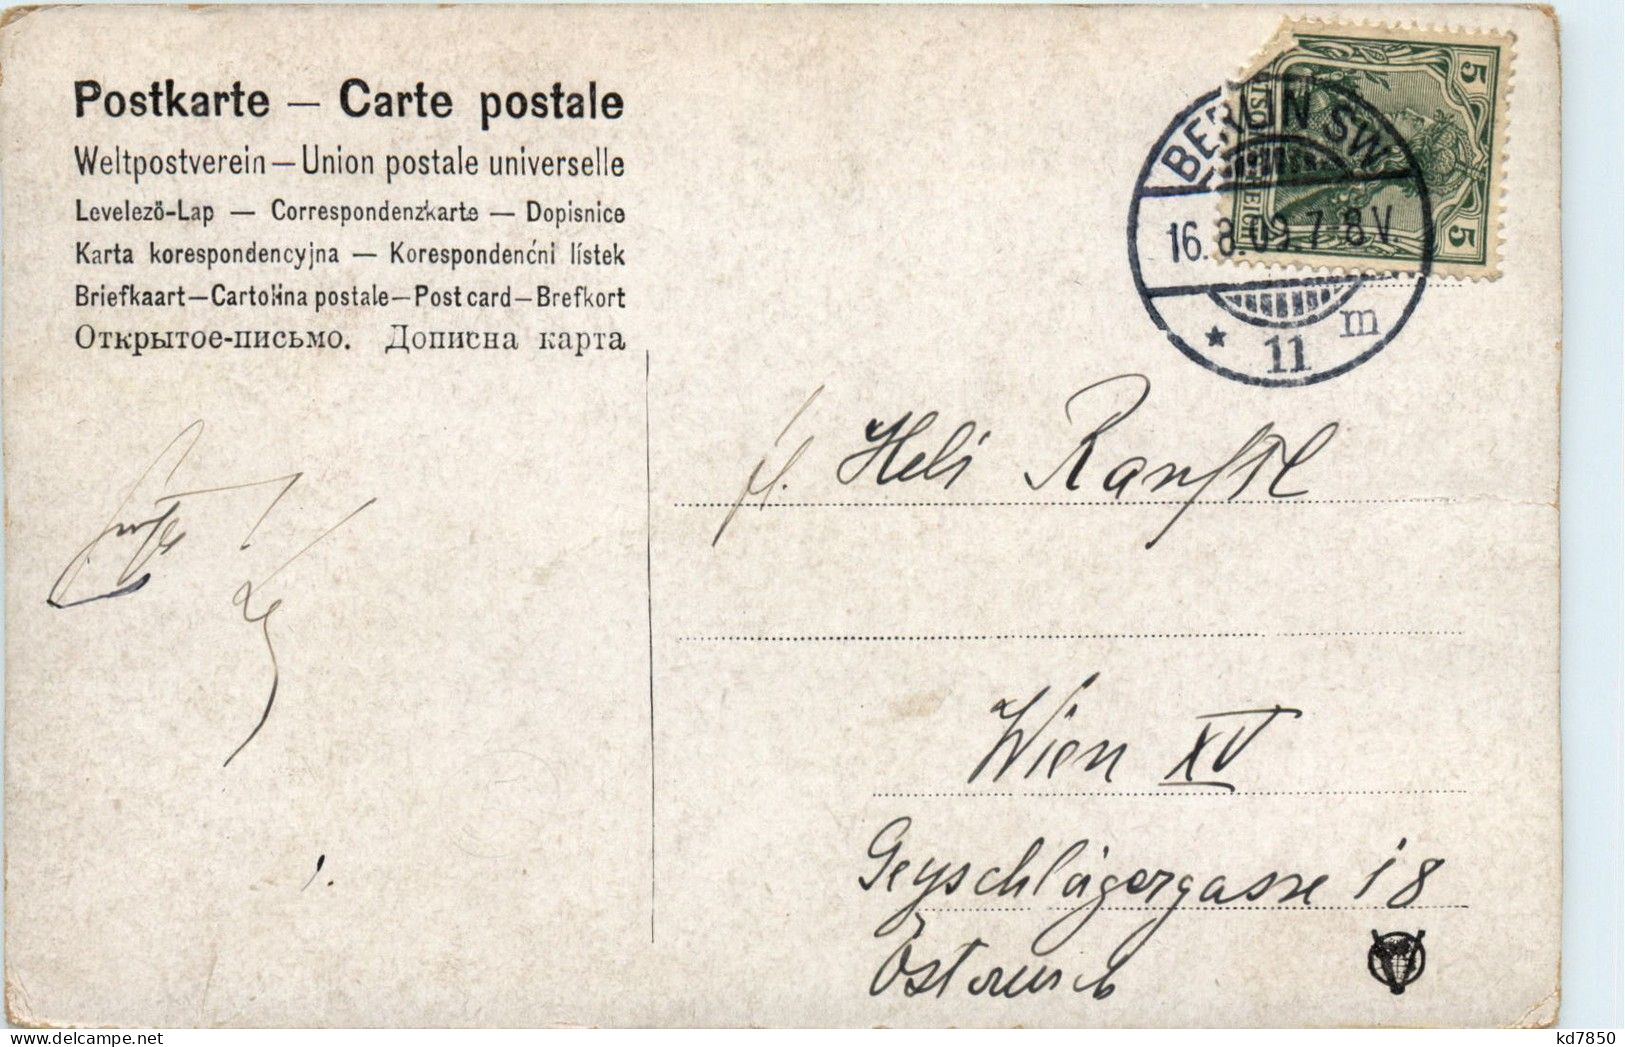 Postkarte – Carte postale
Weltpostverein – Union postale universelle
Levelezö-Lap — Correspondenzkarte — Dopisnice
Karta korespondencyjna — Korespondenćni lístek
Briefkaart – Cartolina postale – Post card – Brefkort
Открытое-письмо. Дописна карта
5
5
BERLIN SW
16.8.09.7-8V.
* 11 m
Heli Ranftl
Wien XV
Geyschlägergasse 18
Östereich
kd7850